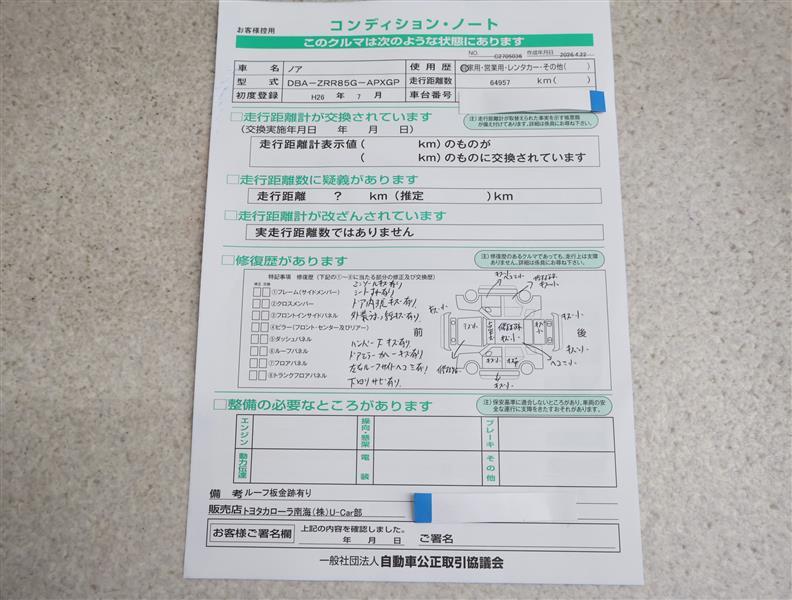 お客様控用
コンディション・ノート
このクルマは次のような状態にあります
NO. C2705036 作成年月日 2026.4.22
車名 ノア 使用歴 自家用・営業用・レンタカー・その他( )
型式 DBA-ZRR85G-APXGP 走行距離数 64957 km( )
初度登録 H26 年 7 月 車台番号
□走行距離計が交換されています
(注)走行距離計が取替えられた事実を示す帳票類が備え付けてあります。詳細は係員にお尋ね下さい。
(交換実施年月日 年 月 日)
走行距離計表示値( km)のものが
( km)のものに交換されています
□走行距離数に疑義があります
走行距離 ? km(推定 )km
□走行距離計が改ざんされています
実走行距離数ではありません
□修復歴があります
(注)修復歴のあるクルマであっても、走行上は支障ありません。詳細は係員にお尋ね下さい。
特記事項 修復歴(下記の①~⑧に当たる部分の修正及び交換歴)
修正 交換
①フレーム(サイドメンバー)
②クロスメンバー
③フロントインサイドパネル
④ピラー(フロント・センター及びリアー)
⑤ダッシュパネル
⑥ルーフパネル
⑦フロアパネル
⑧トランクフロアパネル
ドア内張キズ有り
バンパー下キズ有り
ドアミラーカバーキズ有り
左右ルーフサイドヘコミ有り
下回りサビ有り
前
後
キズ小
ヘコミ小
□整備の必要なところがあります
(注)保安基準に適合しないところがあり、車両の安全な運行に支障をきたすおそれがあります。
エンジン 操向・懸架 ブレーキ
動力伝達 電装 その他
備考 ルーフ板金跡有り
販売店 トヨタカローラ南海(株)U-Car部
お客様ご署名欄 上記の内容を確認しました。
年 月 日 ご署名
一般社団法人 自動車公正取引協議会